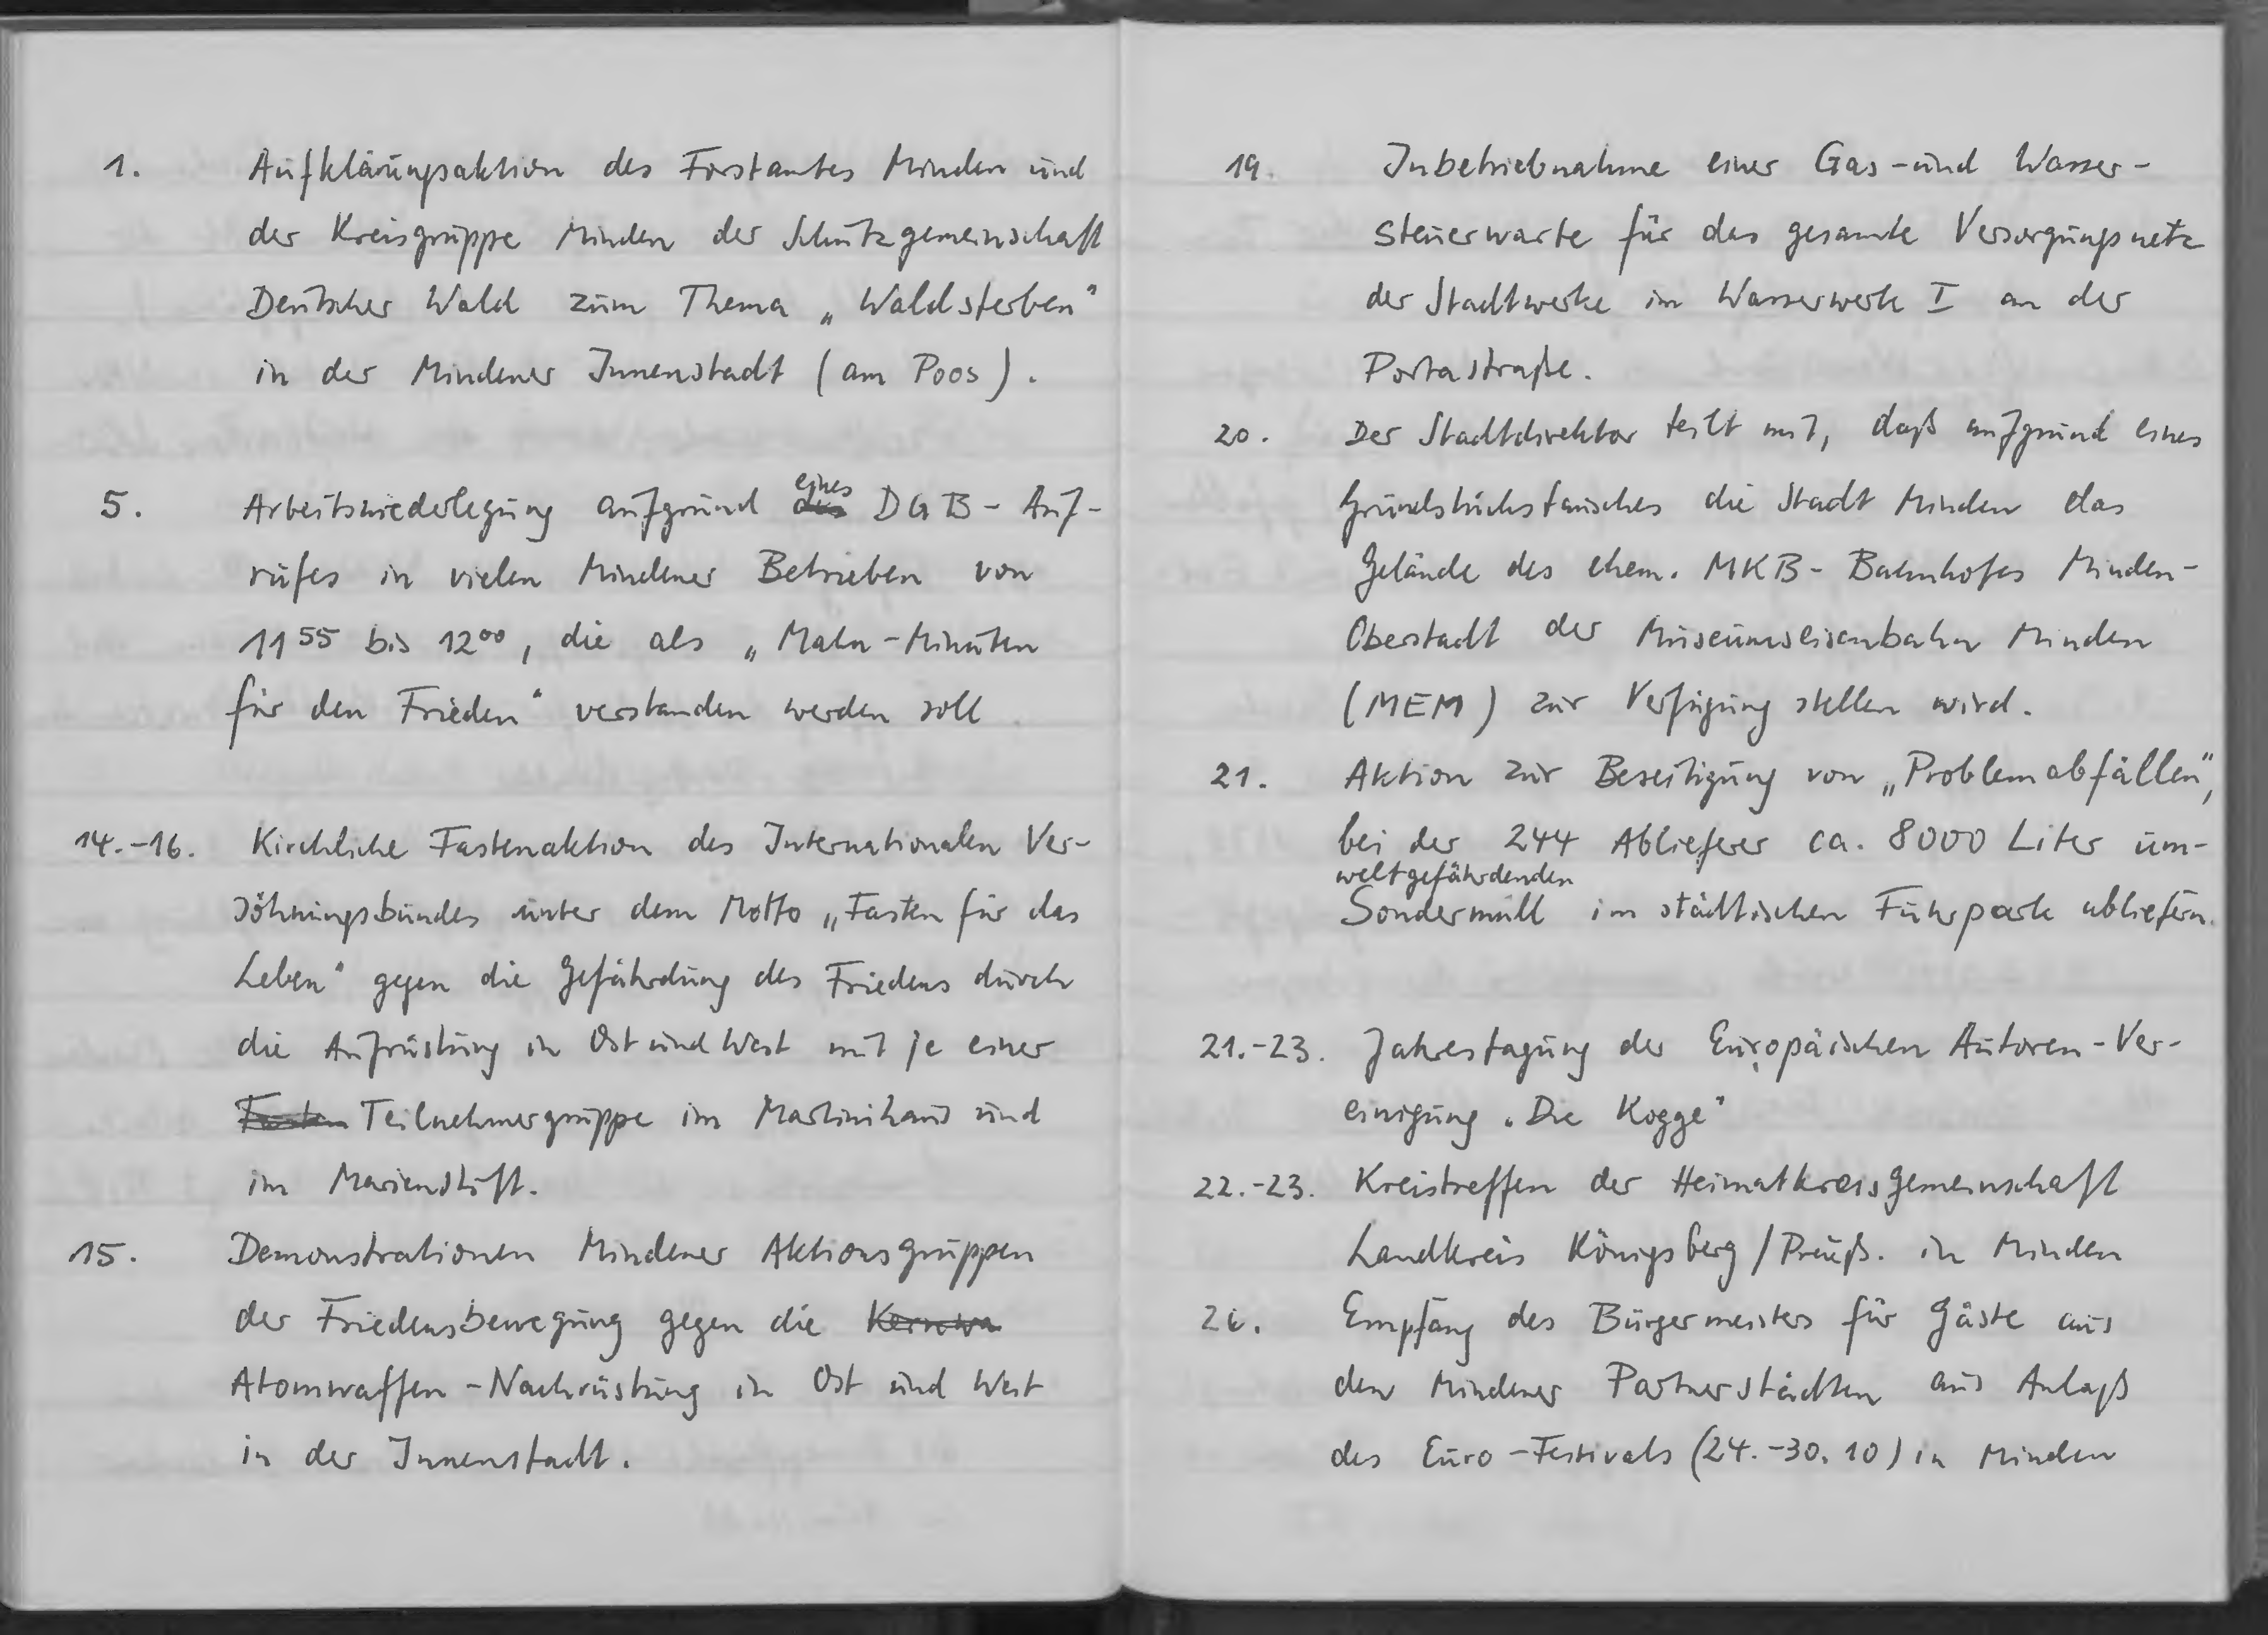 1. Aufklärungsaktion des Forstamtes Minden und
der Kreisgruppe Minden der Schutzgemeinschaft
Deutscher Wald zum Thema „Waldsterben“
in der Mindener Innenstadt (am Poos).
5. Arbeitsniederlegung aufgrund des eines DGB-Auf-
rufes in vielen Mindener Betrieben von
11⁵⁵ bis 12⁰⁰, die als „Mahn-Minuten
für den Frieden“ verstanden werden soll
14.-16. Kirchliche Fastenaktion des Internationalen Ver-
söhnungsbundes unter dem Motto „Fasten für das
Leben“ gegen die Gefährdung des Friedens durch
die Aufrüstung in Ost und West mit je einer
Fasten Teilnehmergruppe im Martinihaus und
im Marienstift.
15. Demonstrationen Mindener Aktionsgruppen
der Friedensbewegung gegen die
Atomwaffen-Nachrüstung in Ost und West
in der Innenstadt.
19. Inbetriebnahme einer Gas-und Wasser-
steuerwarte für das gesamte Versorgungsnetz
der Stadtwerke im Wasserwerk I an der
Portastraße.
20. Der Stadtdirektor teilt mit, daß aufgrund eines
Grundstückstausches die Stadt Minden das
Gelände des ehem. MKB-Bahnhofes Minden-
Oberstadt der Museumseisenbahn Minden
(MEM) zur Verfügung stellen wird.
21. Aktion zur Beseitigung von „Problemabfällen“,
bei der 244 Ablieferer ca. 8000 Liter um-
weltgefährdenden
Sondermüll im städtischen Fuhrpark abliefern.
21.-23. Jahrestagung der Europäischen Autoren-Ver-
einigung „Die Kogge“
22.-23. Kreistreffen der Heimatkreisgemeinschaft
Landkreis Königsberg/Preuß. in Minden
26. Empfang des Bürgermeisters für Gäste aus
den Mindener Partnerstädten aus Anlaß
des Euro-Festivals (24.-30.10) in Minden